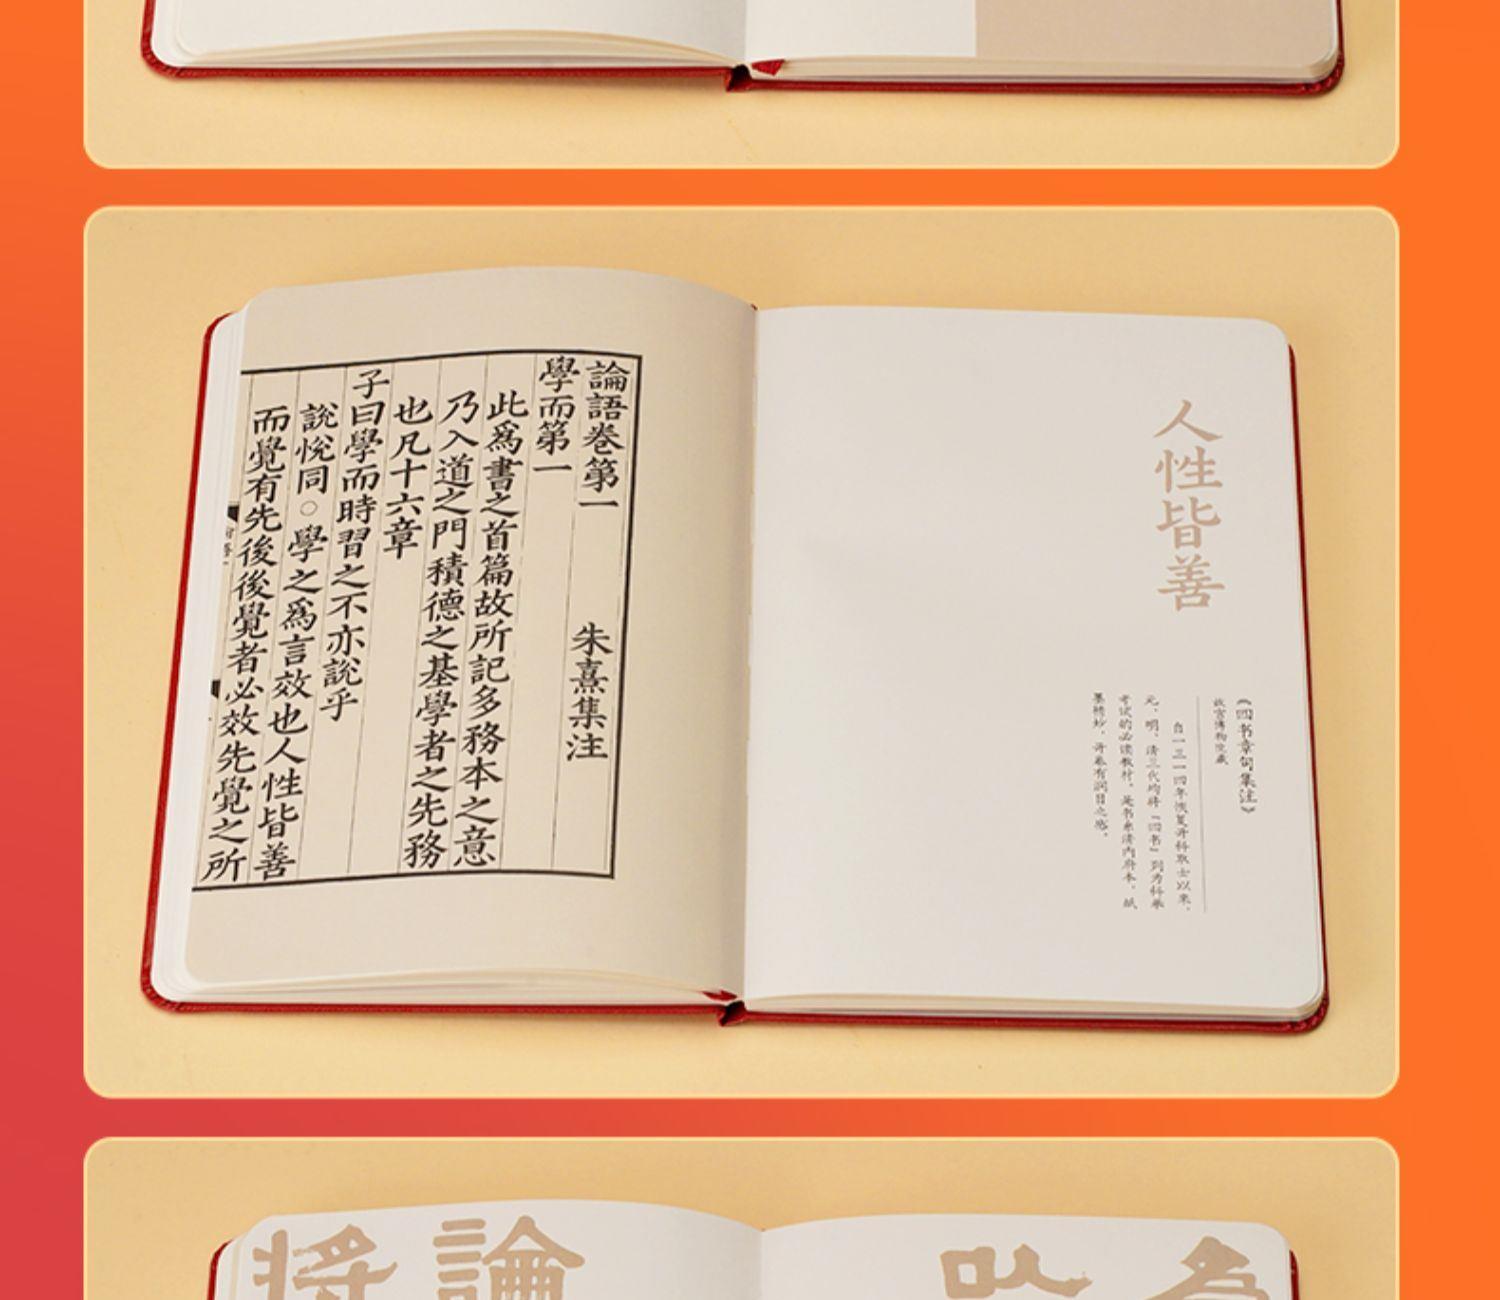 論語卷第一 朱熹集注
學而第一
此爲書之首篇故所記多務本之意
乃入道之門積德之基學者之先務
也凡十六章
子曰學而時習之不亦說乎
說悅同○學之爲言效也人性皆善
而覺有先後後覺者必效先覺之所
人性皆善
《四书章句集注》
故宫博物院藏
自一三一四年恢复开科取士以来，
元、明、清三代均将“四书”列为科举
考试的必读教材。是书系清内府本，纸
墨精妙，开卷有润目之感。
將論